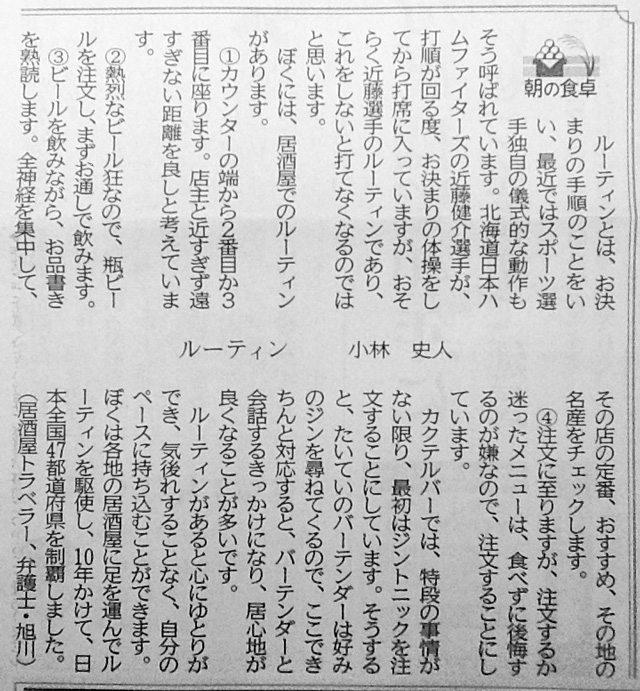 朝の食卓
ルーティン　小林　史人
ルーティンとは、お決
まりの手順のことをい
い、最近ではスポーツ選
手独自の儀式的な動作も
そう呼ばれています。北海道日本ハ
ムファイターズの近藤健介選手が、
打順が回る度、お決まりの体操をし
てから打席に入っていますが、おそ
らく近藤選手のルーティンであり、
これをしないと打てなくなるのでは
と思います。
ぼくには、居酒屋でのルーティン
があります。
①カウンターの端から2番目か3
番目に座ります。店主と近すぎず遠
すぎない距離を良しと考えていま
す。
②熱烈なビール狂なので、瓶ビー
ルを注文し、まずお通しで飲みます。
③ビールを飲みながら、お品書き
を熟読します。全神経を集中して、
その店の定番、おすすめ、その地の
名産をチェックします。
④注文に至りますが、注文するか
迷ったメニューは、食べずに後悔す
るのが嫌なので、注文することにし
ています。
カクテルバーでは、特段の事情が
ない限り、最初はジントニックを注
文することにしています。そうする
と、たいていのバーテンダーは好み
のジンを尋ねてくるので、ここでき
ちんと対応すると、バーテンダーと
会話するきっかけになり、居心地が
良くなることが多いです。
ルーティンがあると心にゆとりが
でき、気後れすることなく、自分の
ペースに持ち込むことができます。
ぼくは各地の居酒屋に足を運んでル
ーティンを駆使し、10年かけて、日
本全国47都道府県を制覇しました。
（居酒屋トラベラー、弁護士・旭川）